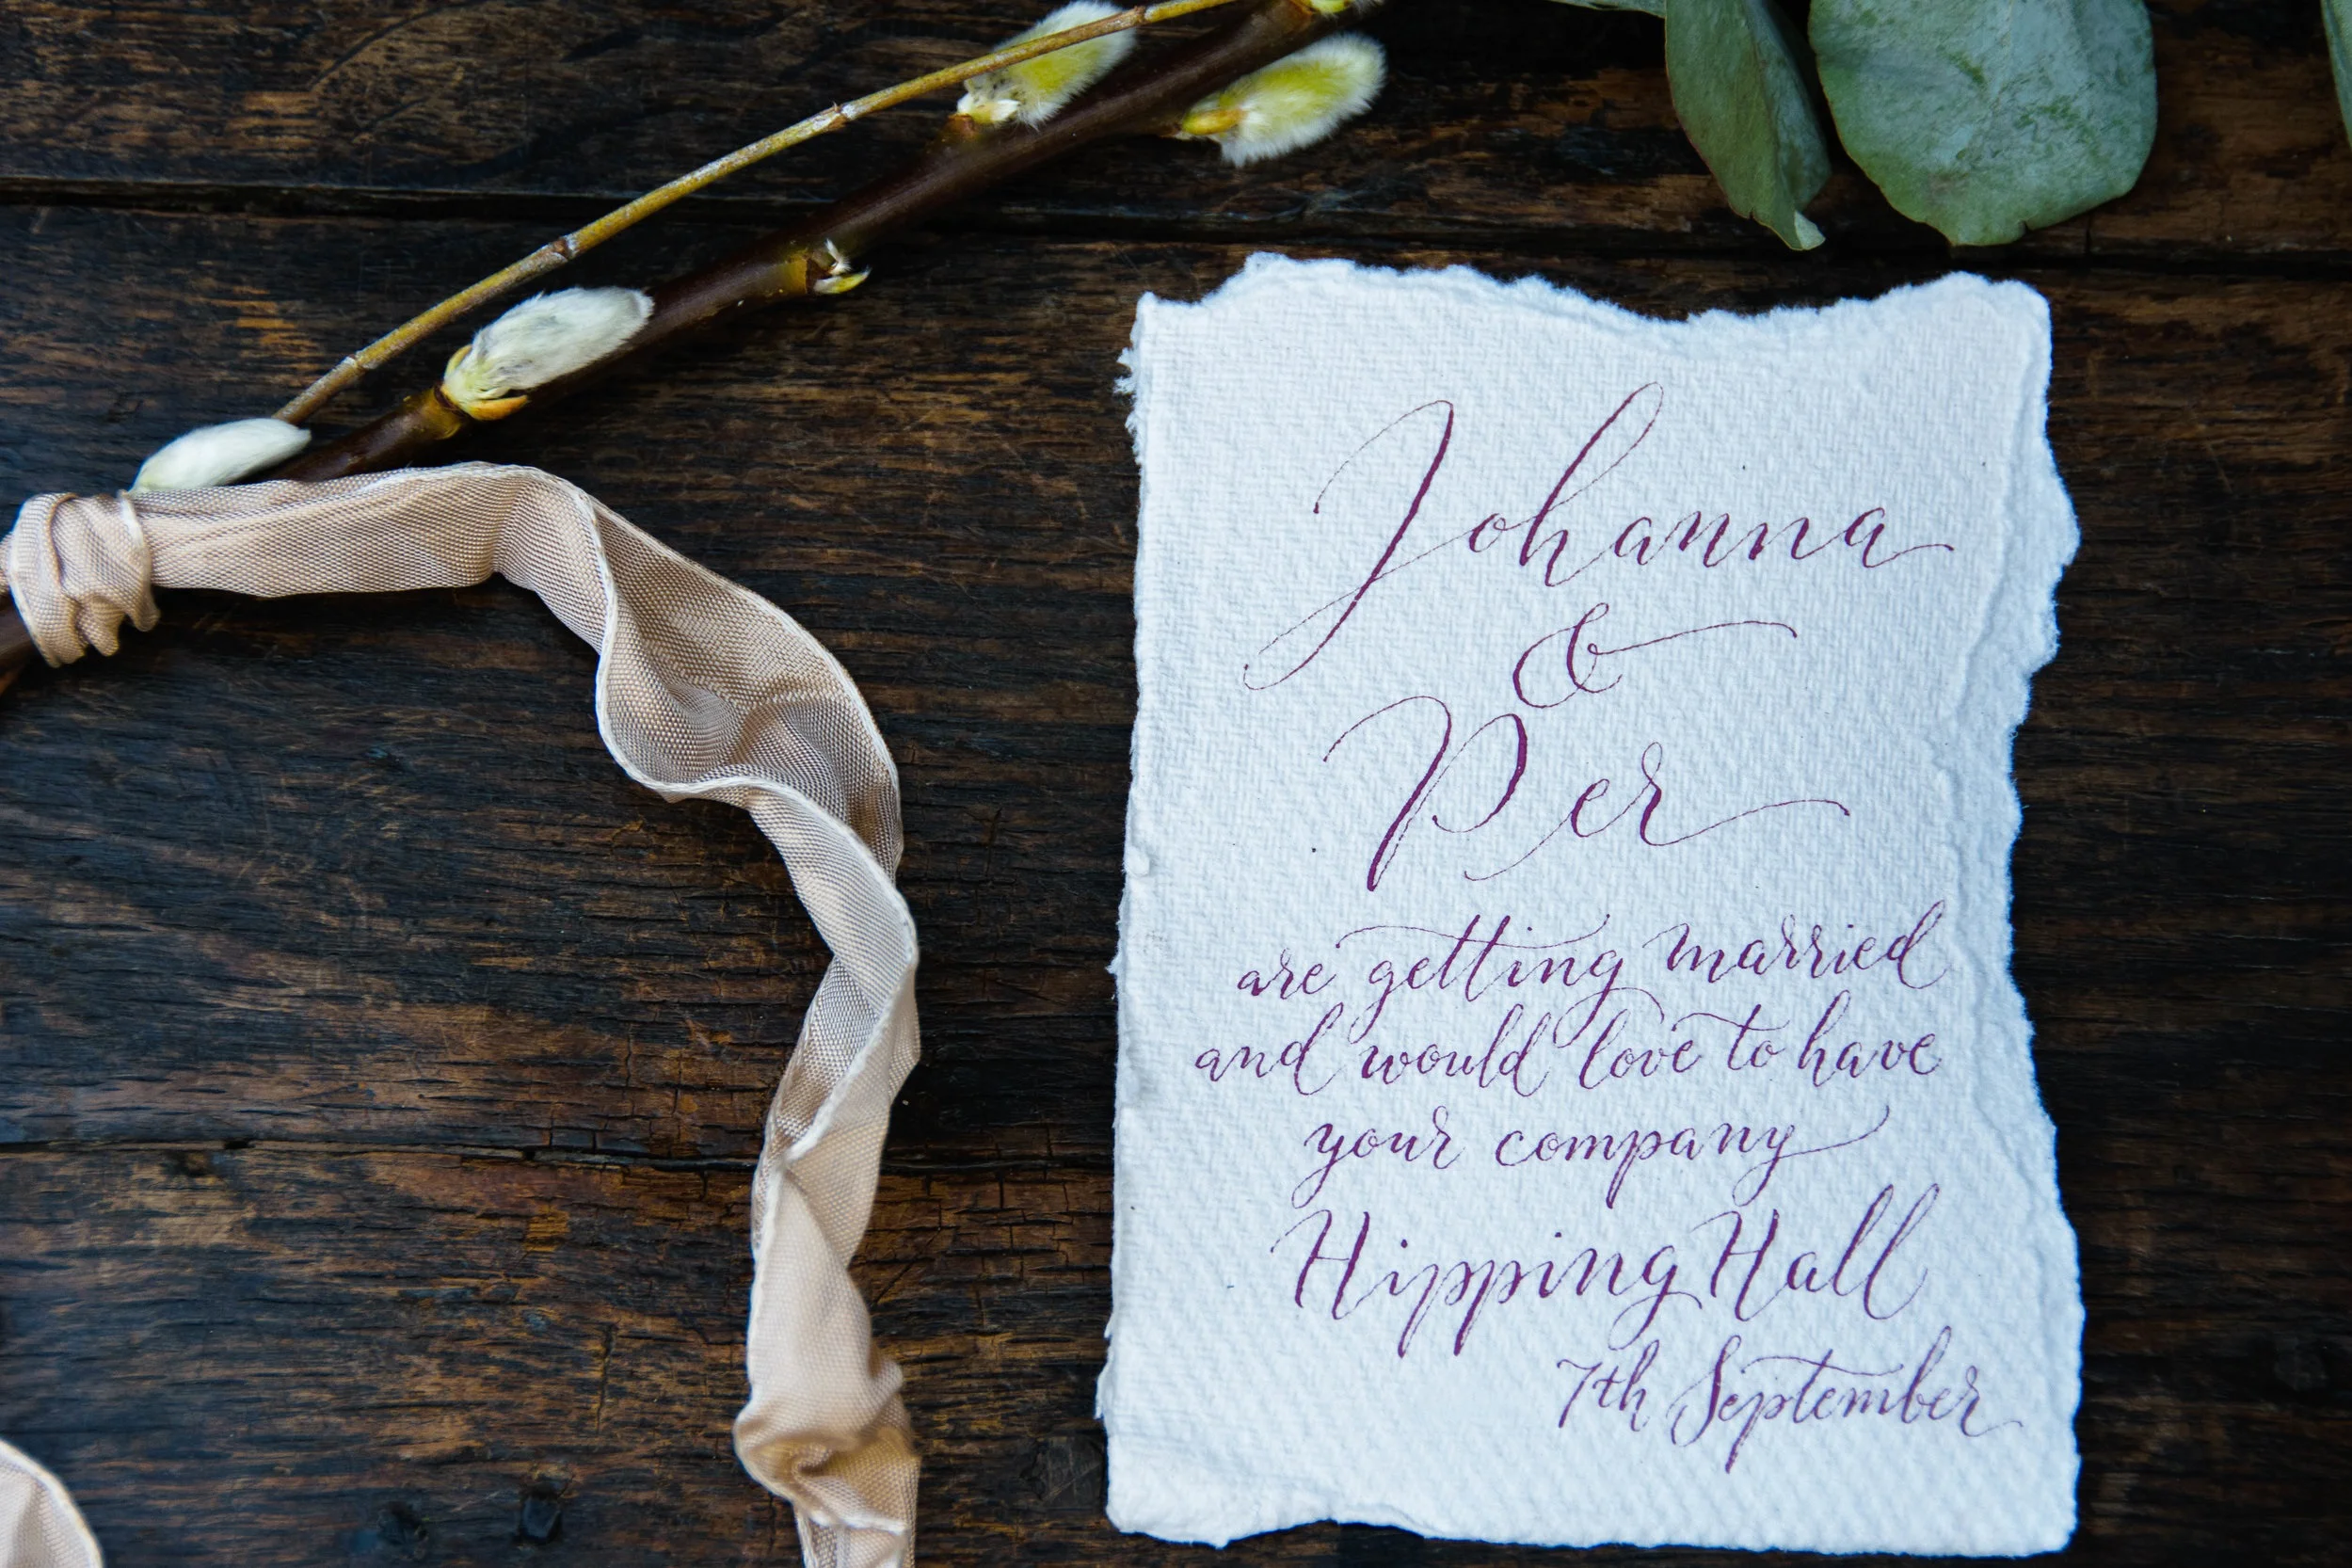 Johanna
&
Per
are getting married
and would love to have
your company
Hipping Hall
7th September